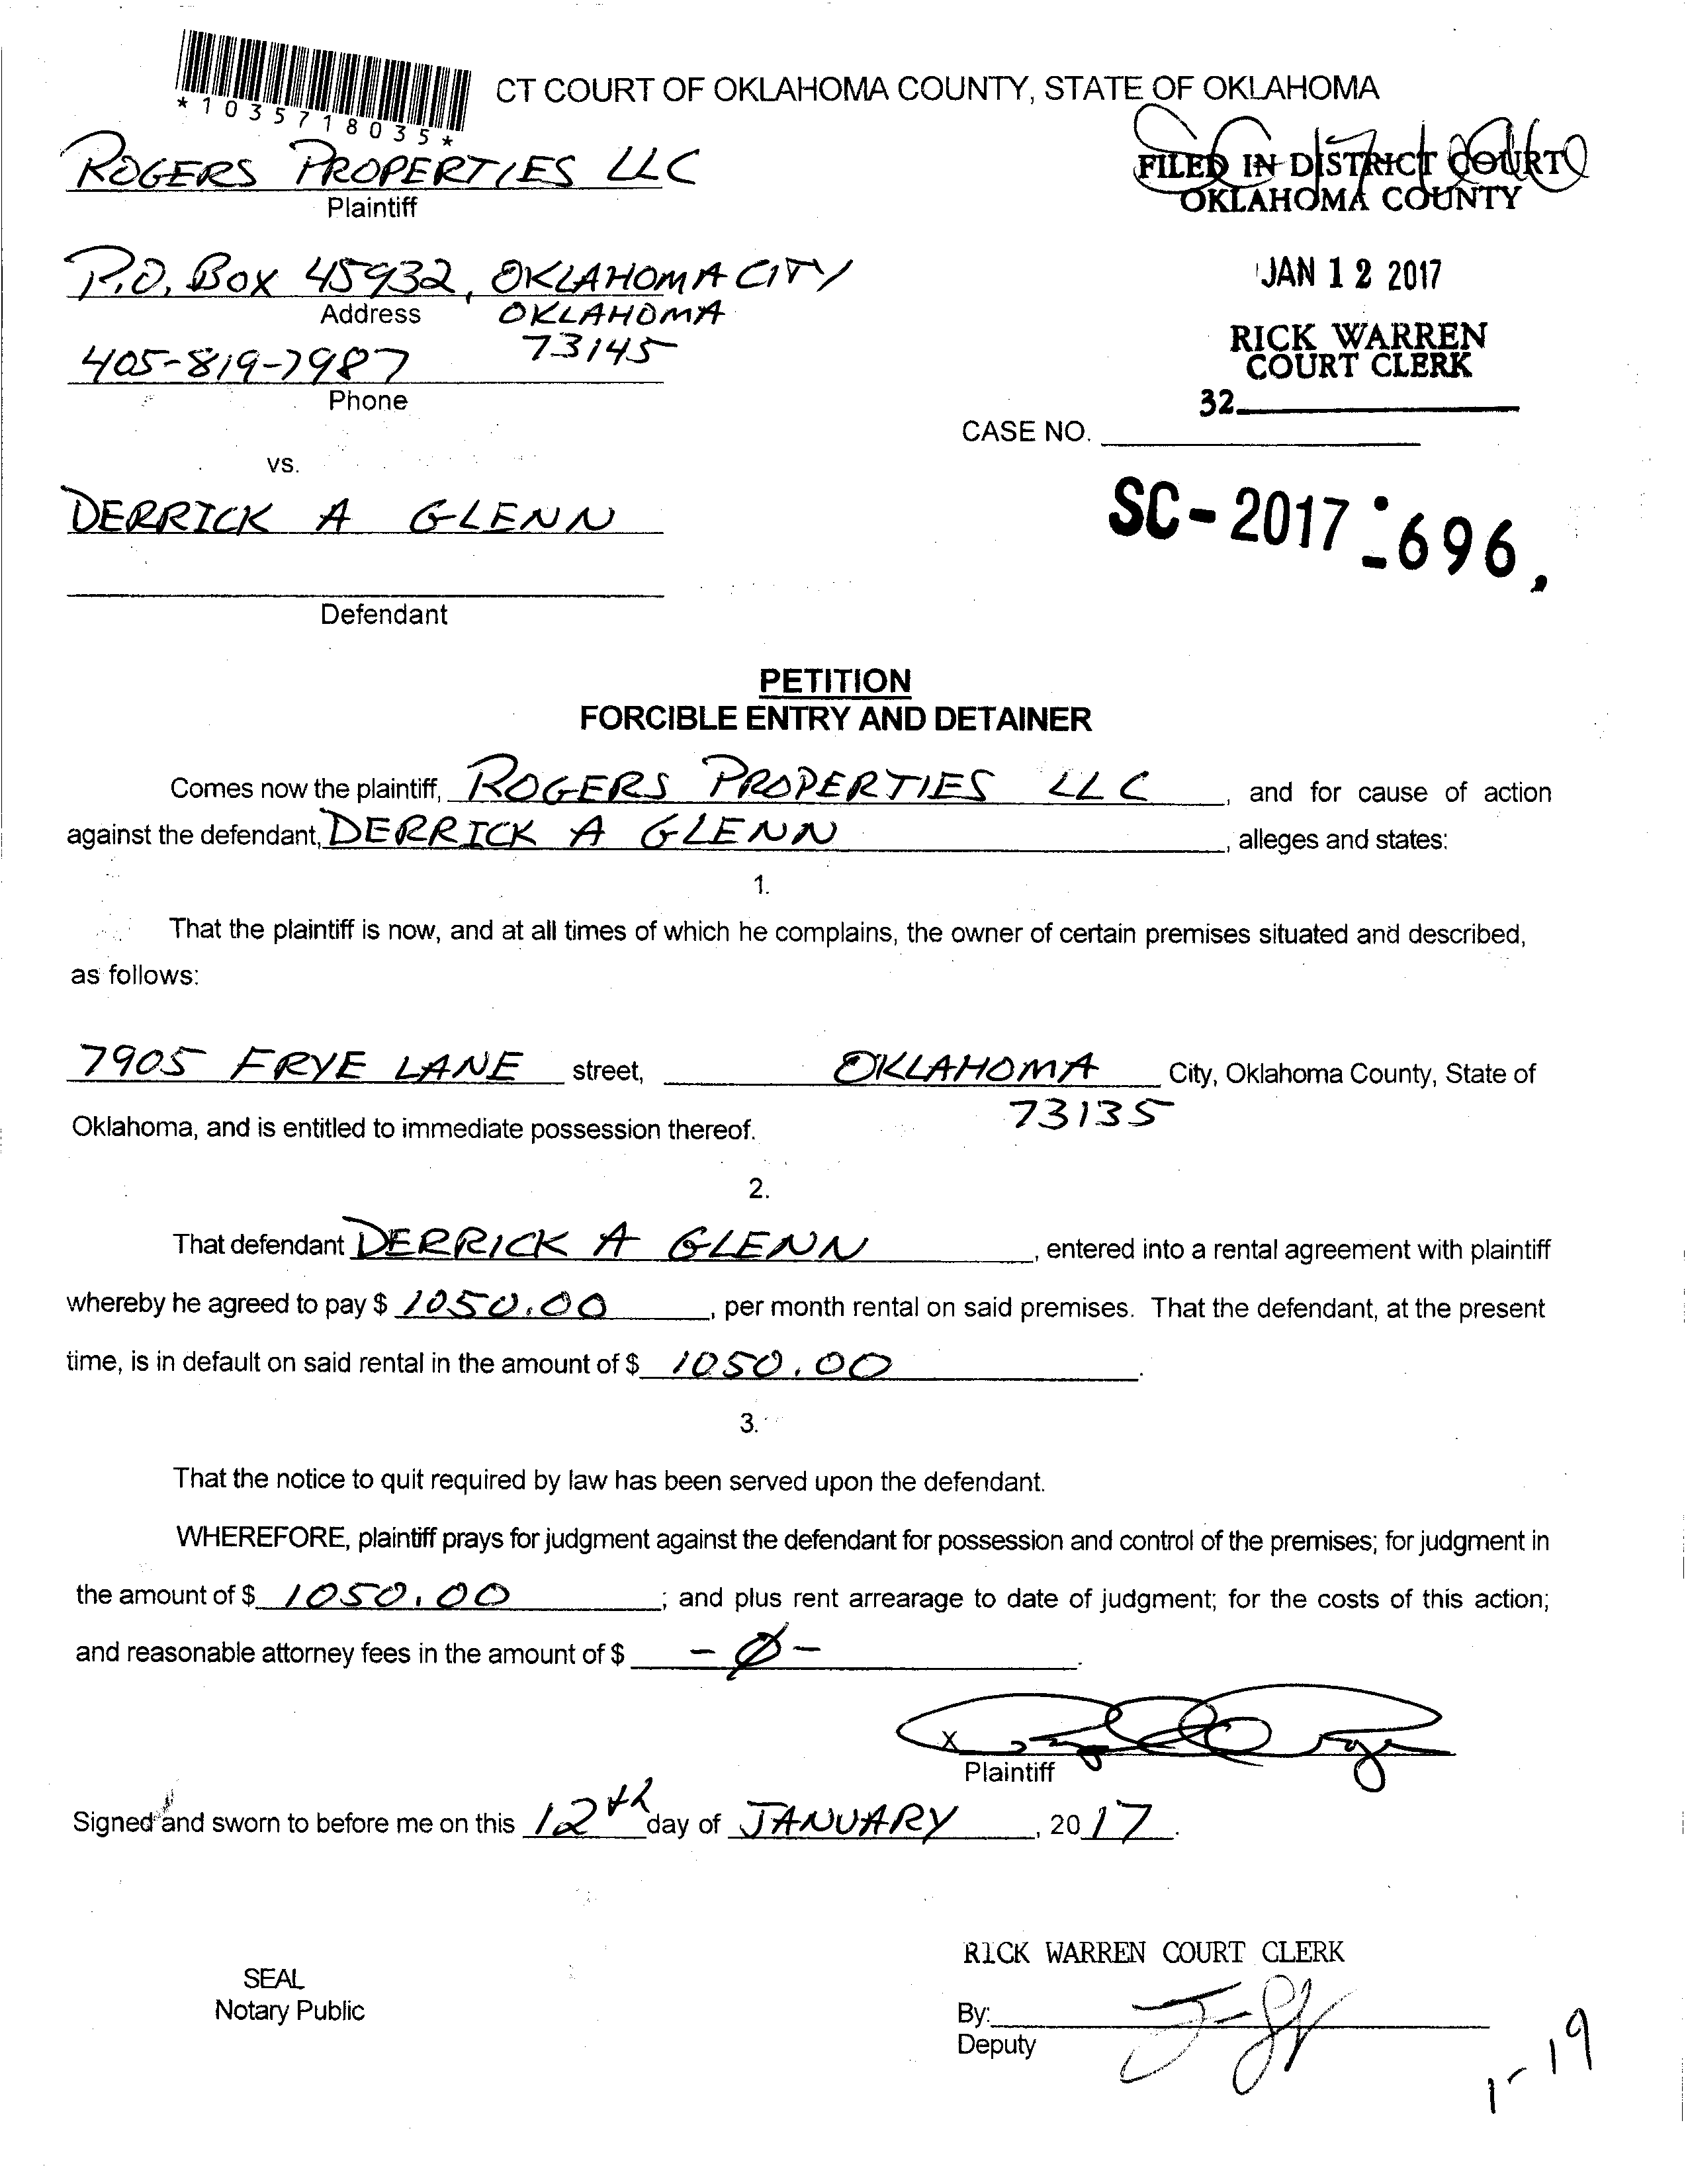 *1035718035*
CT COURT OF OKLAHOMA COUNTY, STATE OF OKLAHOMA
ROGERS PROPERTIES LLC
Plaintiff
FILED IN DISTRICT COURT
OKLAHOMA COUNTY
P.O. BOX 45932, OKLAHOMA CITY
Address
OKLAHOMA
73145
JAN 12 2017
405-819-7987
Phone
RICK WARREN
COURT CLERK
32
CASE NO.
vs.
DERRICK A GLENN
SC-2017-696
Defendant
PETITION
FORCIBLE ENTRY AND DETAINER
Comes now the plaintiff, ROGERS PROPERTIES LLC, and for cause of action
against the defendant, DERRICK A GLENN, alleges and states:
1.
That the plaintiff is now, and at all times of which he complains, the owner of certain premises situated and described,
as follows:
7905 FRYE LANE street, OKLAHOMA City, Oklahoma County, State of
73135
Oklahoma, and is entitled to immediate possession thereof.
2.
That defendant DERRICK A GLENN, entered into a rental agreement with plaintiff
whereby he agreed to pay $ 1050.00, per month rental on said premises. That the defendant, at the present
time, is in default on said rental in the amount of $ 1050.00.
3.
That the notice to quit required by law has been served upon the defendant.
WHEREFORE, plaintiff prays for judgment against the defendant for possession and control of the premises; for judgment in
the amount of $ 1050.00; and plus rent arrearage to date of judgment; for the costs of this action;
and reasonable attorney fees in the amount of $ -0-.
X
Plaintiff
Signed and sworn to before me on this 12th day of JANUARY, 2017.
RICK WARREN COURT CLERK
SEAL
Notary Public
By:
Deputy
1-19